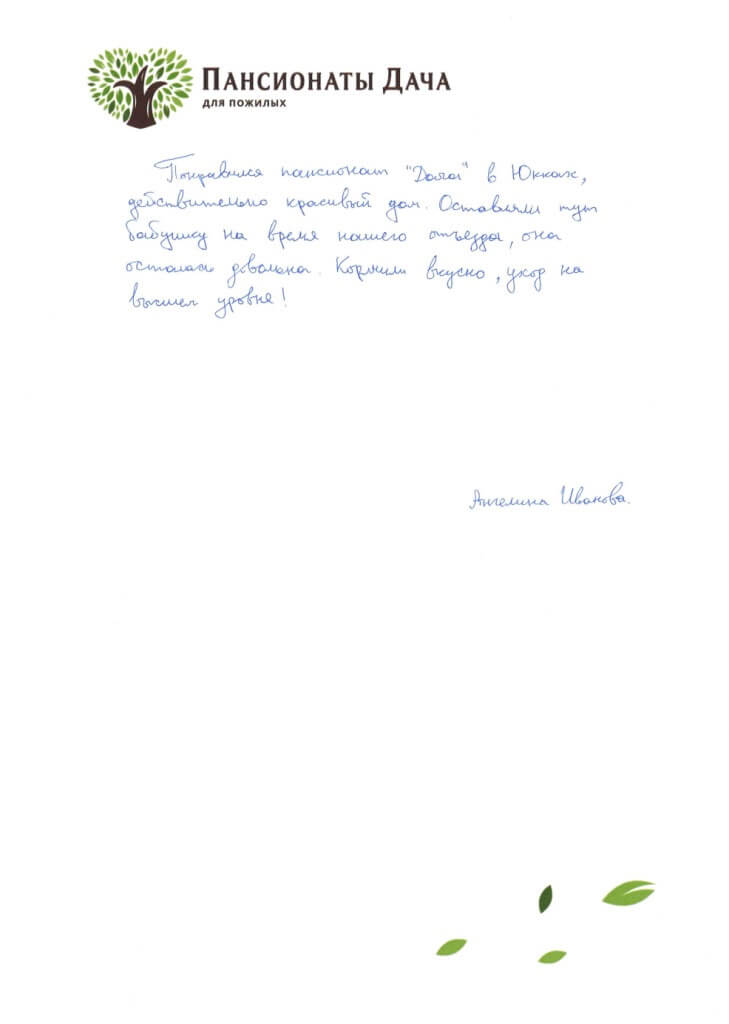 ПАНСИОНАТЫ ДАЧА
ДЛЯ ПОЖИЛЫХ
Понравился пансионат "Дача" в Юкках,
действительно красивый дом. Оставляли тут
бабушку на время нашего отъезда, она
осталась довольна. Кормили вкусно, уход на
высшем уровне!
Ангелина Иванова.